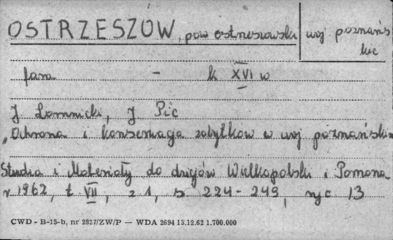 OSTRZESZÓW, pow ostrzeszowski woj poznańs
kie
fara - k XVI w
J Łomnicki, J Pic
„Ochrona i konserwacja zabytków w woj poznańskim
Studia i Materiały do dziejów Wielkopolski i Pomorza
r 1962, t VII, z 1, s 224-249, ryc 13
CWD - B-15-b, nr 2827/ZW/P — WDA 2694 13.12.62 1.700.000